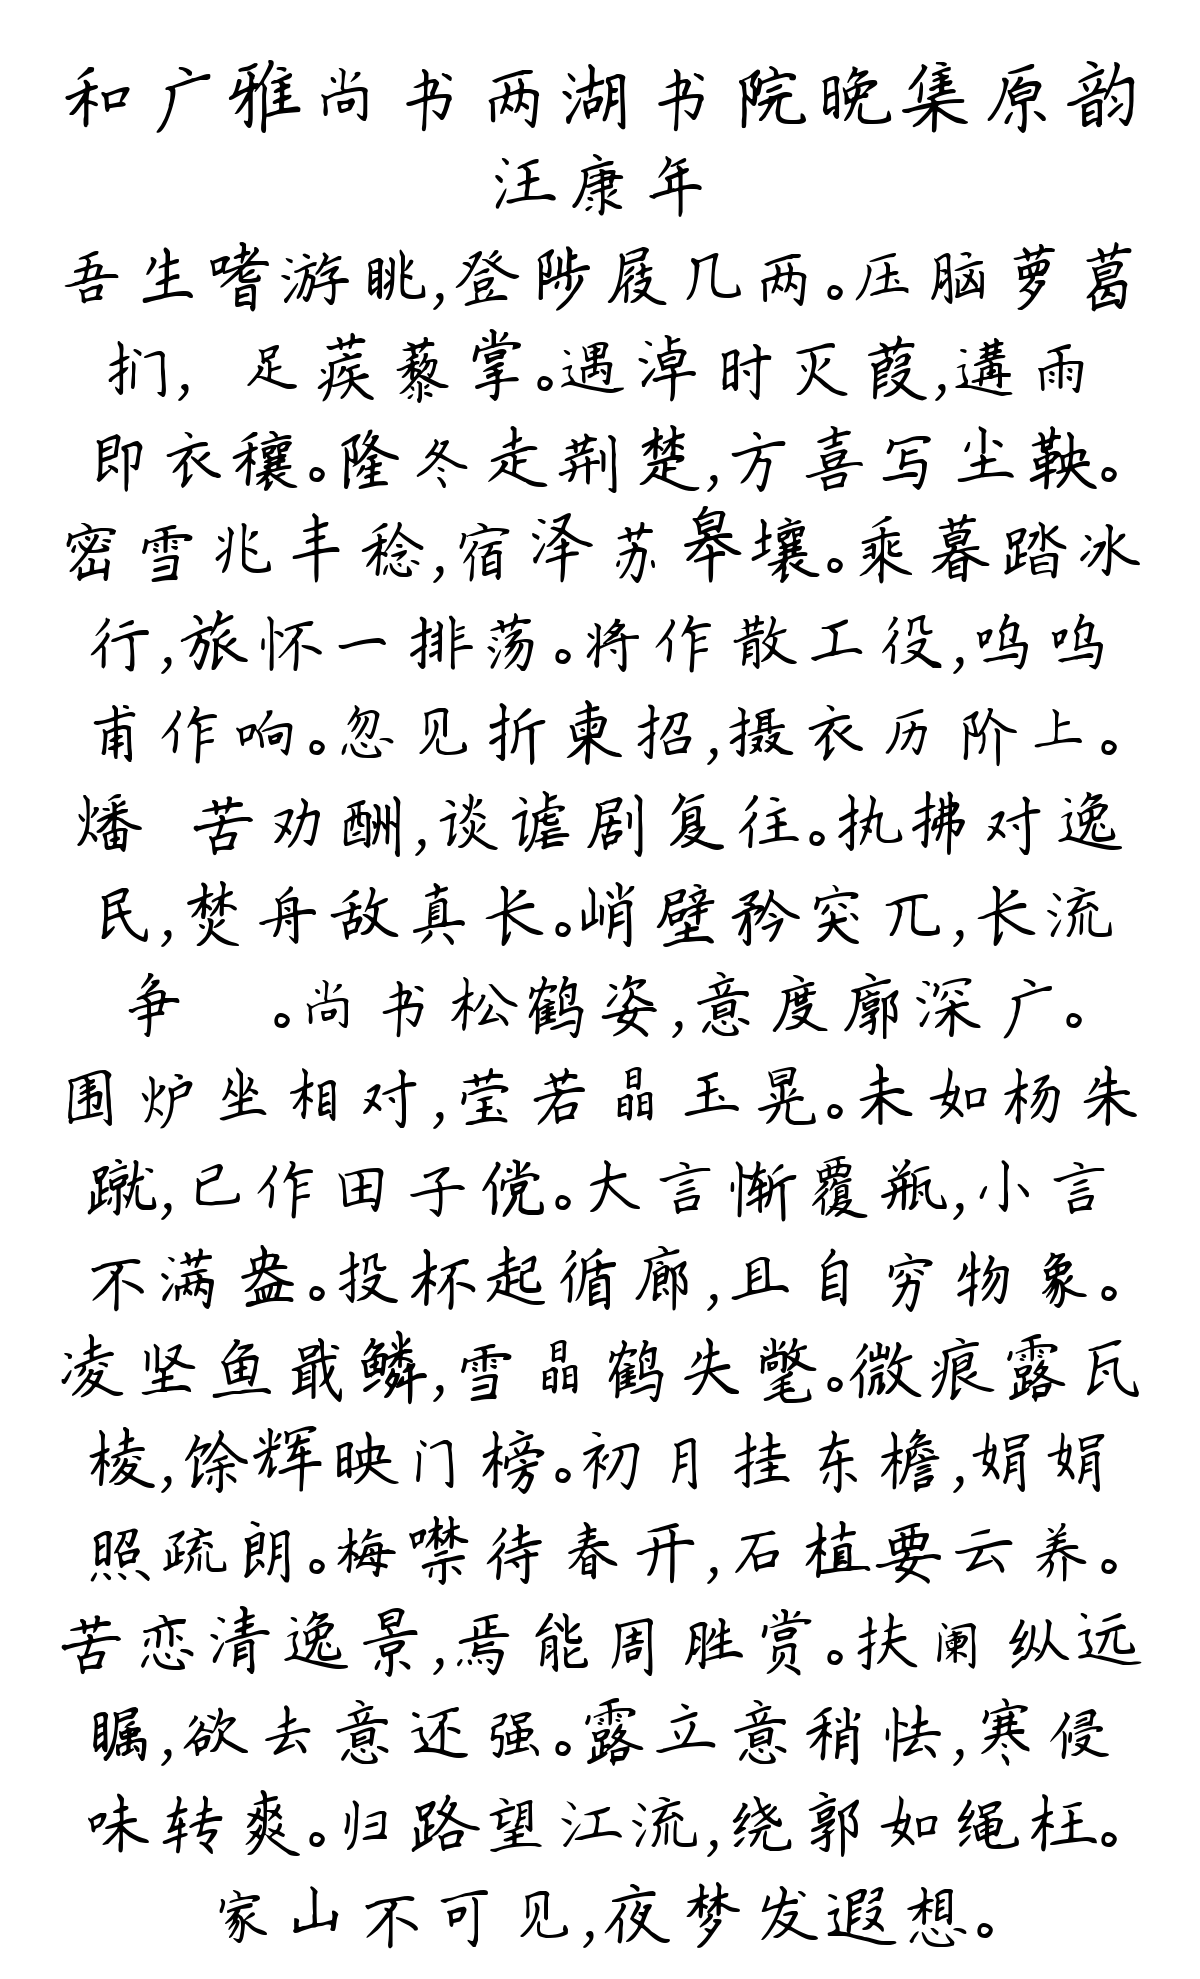 和广雅尚书两湖书院晚集原韵
汪康年
吾生嗜游眺,登陟屐几两。压脑萝葛
扪, 足蒺藜掌。遇淖时灭葭,遘雨
即衣穰。隆冬走荆楚,方喜写尘鞅。
密雪兆丰稔,宿泽苏皋壤。乘暮踏冰
行,旅怀一排荡。将作散工役,呜呜
甫作响。忽见折柬招,摄衣历阶上。
燔 苦劝酬,谈谑剧复往。执拂对逸
民,焚舟敌真长。峭壁矜突兀,长流
争 。尚书松鹤姿,意度廓深广。
围炉坐相对,莹若晶玉晃。未如杨朱
蹴,已作田子傥。大言惭覆瓿,小言
不满盎。投杯起循廊,且自穷物象。
凌坚鱼戢鳞,雪晶鹤失氅。微痕露瓦
棱,馀辉映门榜。初月挂东檐,娟娟
照疏朗。梅噤待春开,石植要云养。
苦恋清逸景,焉能周胜赏。扶阑纵远
瞩,欲去意还强。露立意稍怯,寒侵
味转爽。归路望江流,绕郭如绳枉。
家山不可见,夜梦发遐想。